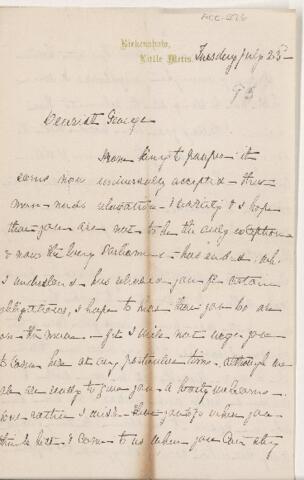 Birkenshaw,
Little Metis.
Tuesday July 23rd
95
George
From King to pauper it
seems now universally accepted that
man needs relaxation & variety & I hope
that you are not to be the only exception
& now the long Parliament has ended wh.
I understand has released you fr certain
obligations, I hope to hear that you too are
on the move yet I will not urge you
to come here at any particular time, although we
all are ready to give you a hearty welcome.
but rather I wish that you go when you
think best & come to us when you can stay